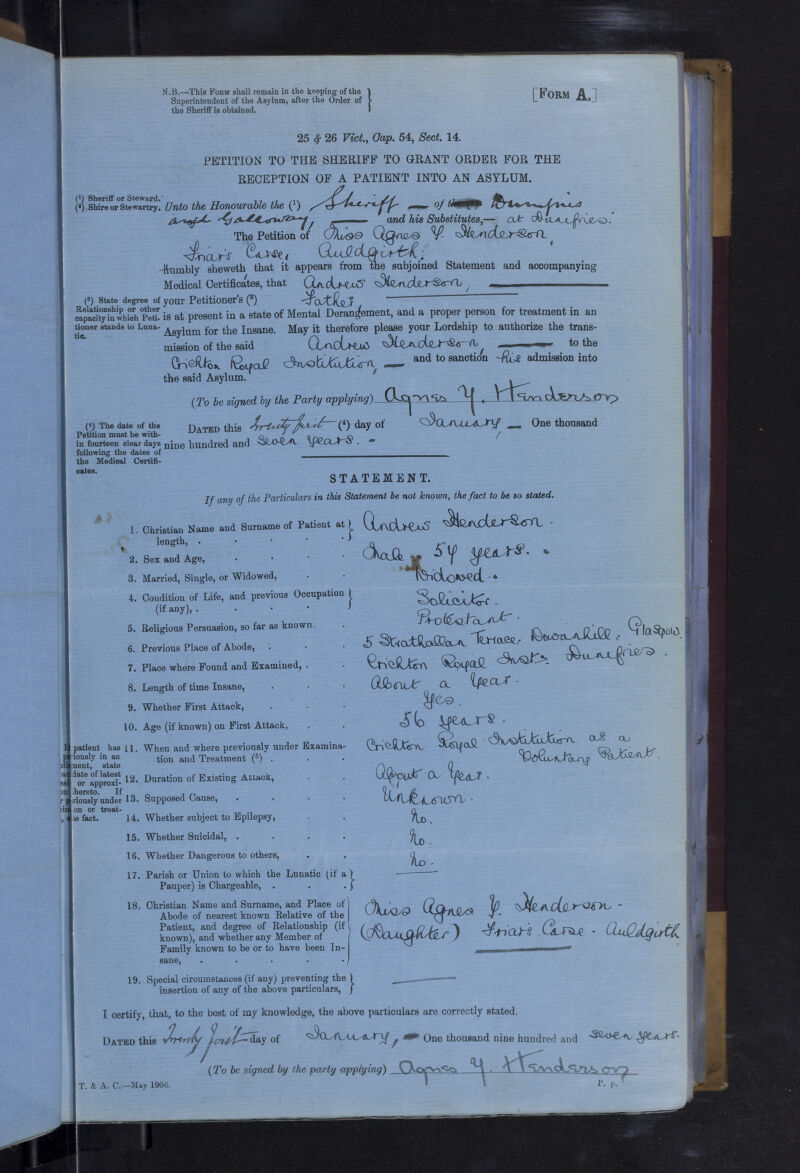 N.B.—This Form shall remain in the keeping of the
Superintendent of the Asylum, after the Order of
the Sheriff is obtained.
[Form A.]
25 & 26 Vict., Cap. 54, Sect. 14.
PETITION TO THE SHERIFF TO GRANT ORDER FOR THE
RECEPTION OF A PATIENT INTO AN ASYLUM.
(1) Sheriff or Steward.
(2) Shire or Stewartry.
Unto the Honourable the (1) Sheriff — of Dumfries
and Galloway, — and his Substitutes,— at Dumfries.
The Petition of Miss Agnes Y. Henderson,
Friars Carse, Auldgirth,
Humbly sheweth, that it appears from the subjoined Statement and accompanying
Medical Certificates, that Andrew Henderson, —
(3) State degree of
Relationship or other
capacity in which Peti-
tioner stands to Luna-
tic.
your Petitioner's (3) Father, —
is at present in a state of Mental Derangement, and a proper person for treatment in an
Asylum for the Insane. May it therefore please your Lordship to authorize the trans-
mission of the said Andrew Henderson, — to the
Crichton Royal Institution, — and to sanction his admission into
the said Asylum.
(To be signed by the Party applying) Agnes Y. Henderson
(4) The date of the
Petition must be with-
in fourteen clear days
following the dates of
the Medical Certifi-
cates.
Dated this Twenty first (4) day of January — One thousand
nine hundred and Seven years. -
STATEMENT.
If any of the Particulars in this Statement be not known, the fact to be so stated.
1. Christian Name and Surname of Patient at
length, . Andrew Henderson.
2. Sex and Age, Male 57 years.
3. Married, Single, or Widowed, Widowed.
4. Condition of Life, and previous Occupation
(if any), . Solicitor.
5. Religious Persuasion, so far as known. Protestant.
6. Previous Place of Abode, 5 Strathallan Terrace, Dowanhill, Glasgow.
7. Place where Found and Examined, Crichton Royal Instn. Dumfries.
8. Length of time Insane, About a year.
9. Whether First Attack, Yes.
10. Age (if known) on First Attack, 56 years.
patient has
iously in an
ment, state
date of latest
or approxi-
hereto. If
viously under
on or treat-
fact.
11. When and where previously under Examina-
tion and Treatment (5) . Crichton Royal Institution as a
Voluntary Patient.
12. Duration of Existing Attack, About a year.
13. Supposed Cause, Unknown.
14. Whether subject to Epilepsy, No.
15. Whether Suicidal, . No.
16. Whether Dangerous to others, No.
17. Parish or Union to which the Lunatic (if a
Pauper) is Chargeable, . —
18. Christian Name and Surname, and Place of
Abode of nearest known Relative of the
Patient, and degree of Relationship (if
known), and whether any Member of
Family known to be or to have been In-
sane, .
Miss Agnes Y. Henderson -
(Daughter) Friars Carse - Auldgirth
19. Special circumstances (if any) preventing the
insertion of any of the above particulars, —
I certify, that, to the best of my knowledge, the above particulars are correctly stated.
Dated this Twenty first day of January, — One thousand nine hundred and Seven years.
(To be signed by the party applying) Agnes Y. Henderson
T. & A. C.—May 1906.
P. p.